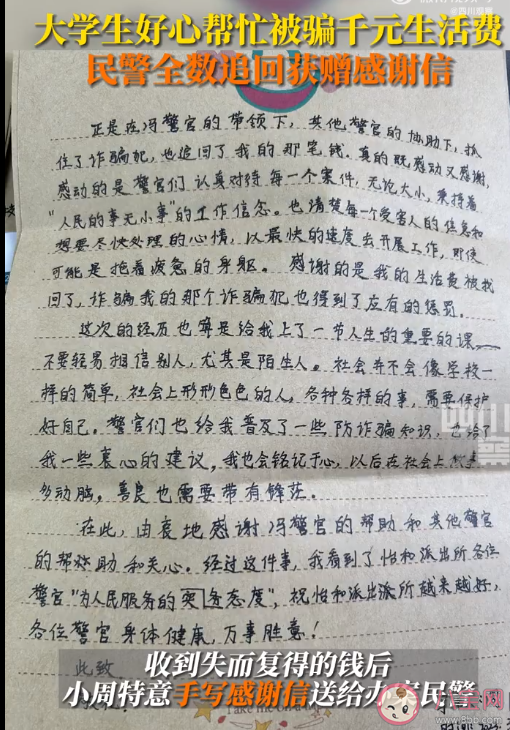 四川观察
大学生好心帮忙被骗千元生活费
民警全数追回获赠感谢信
正是在冯警官的带领下，其他警官的协助下，抓
住了诈骗犯，也追回了我的那笔钱。真的既感动又感谢，
感动的是警官们认真对待每一个案件，无论大小，秉持着
"人民的事无小事"的工作信念。也清楚每个受害人的焦急和
想要尽快处理的心情，以最快的速度去开展工作，即使
可能是拖着疲惫的身躯。感谢的是我的生活费被找
回了，诈骗我的那个诈骗犯也得到了应有的惩罚。
这次的经历也算是给我上了一节人生的重要的课
不要轻易相信别人，尤其是陌生人。社会并不会像学校一
样的简单，社会上形形色色的人，各种各样的事，需要保护
好自己。警官们也给我普及了一些防诈骗知识，也给了
我一些衷心的建议，我也会铭记于心，以后在社会上
多动脑。善良也需要带有锋芒。
在此，由衷地感谢冯警官的帮助和其他警官
的帮助和关心。经过这件事，我看到了怡和派出所各位
警官"为人民服务的 务态度"，祝怡和派出派所越来越好，
各位警官身体健康，万事胜意！
此致
收到失而复得的钱后
小周特意手写感谢信送给办案民警
Take me
八宝网
www.8bb.com